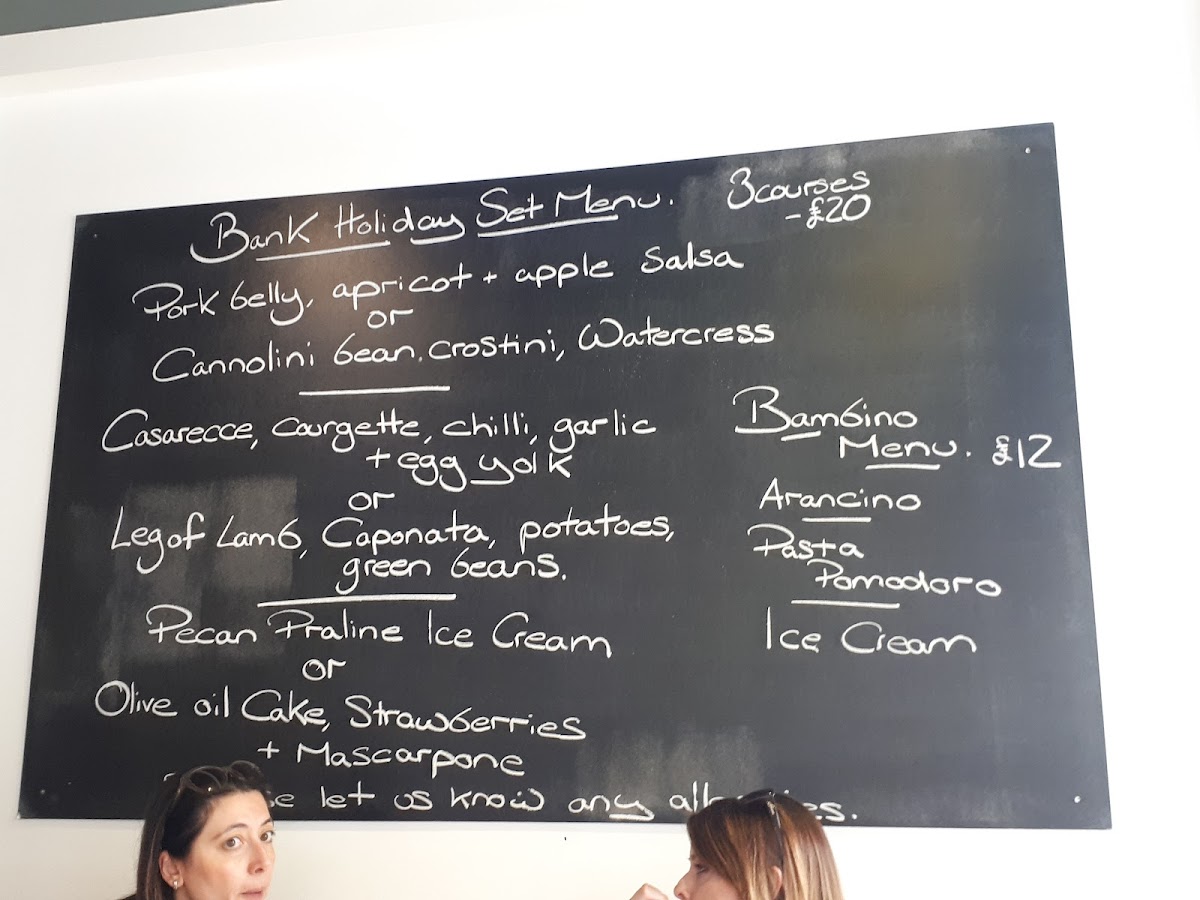 Bank Holiday Set Menu. 3 courses
- £20
Pork belly, apricot + apple Salsa
or
Cannolini bean. crostini, Watercress
Casarecce, courgette, chilli, garlic
+ egg yolk
or
Leg of Lamb, Caponata, potatoes,
green beans.
Pecan Praline Ice Cream
or
Olive oil Cake, Strawberries
+ Mascarpone
let us know any
Bambino
Menu. £12
Arancino
Pasta
Pomodoro
Ice Cream